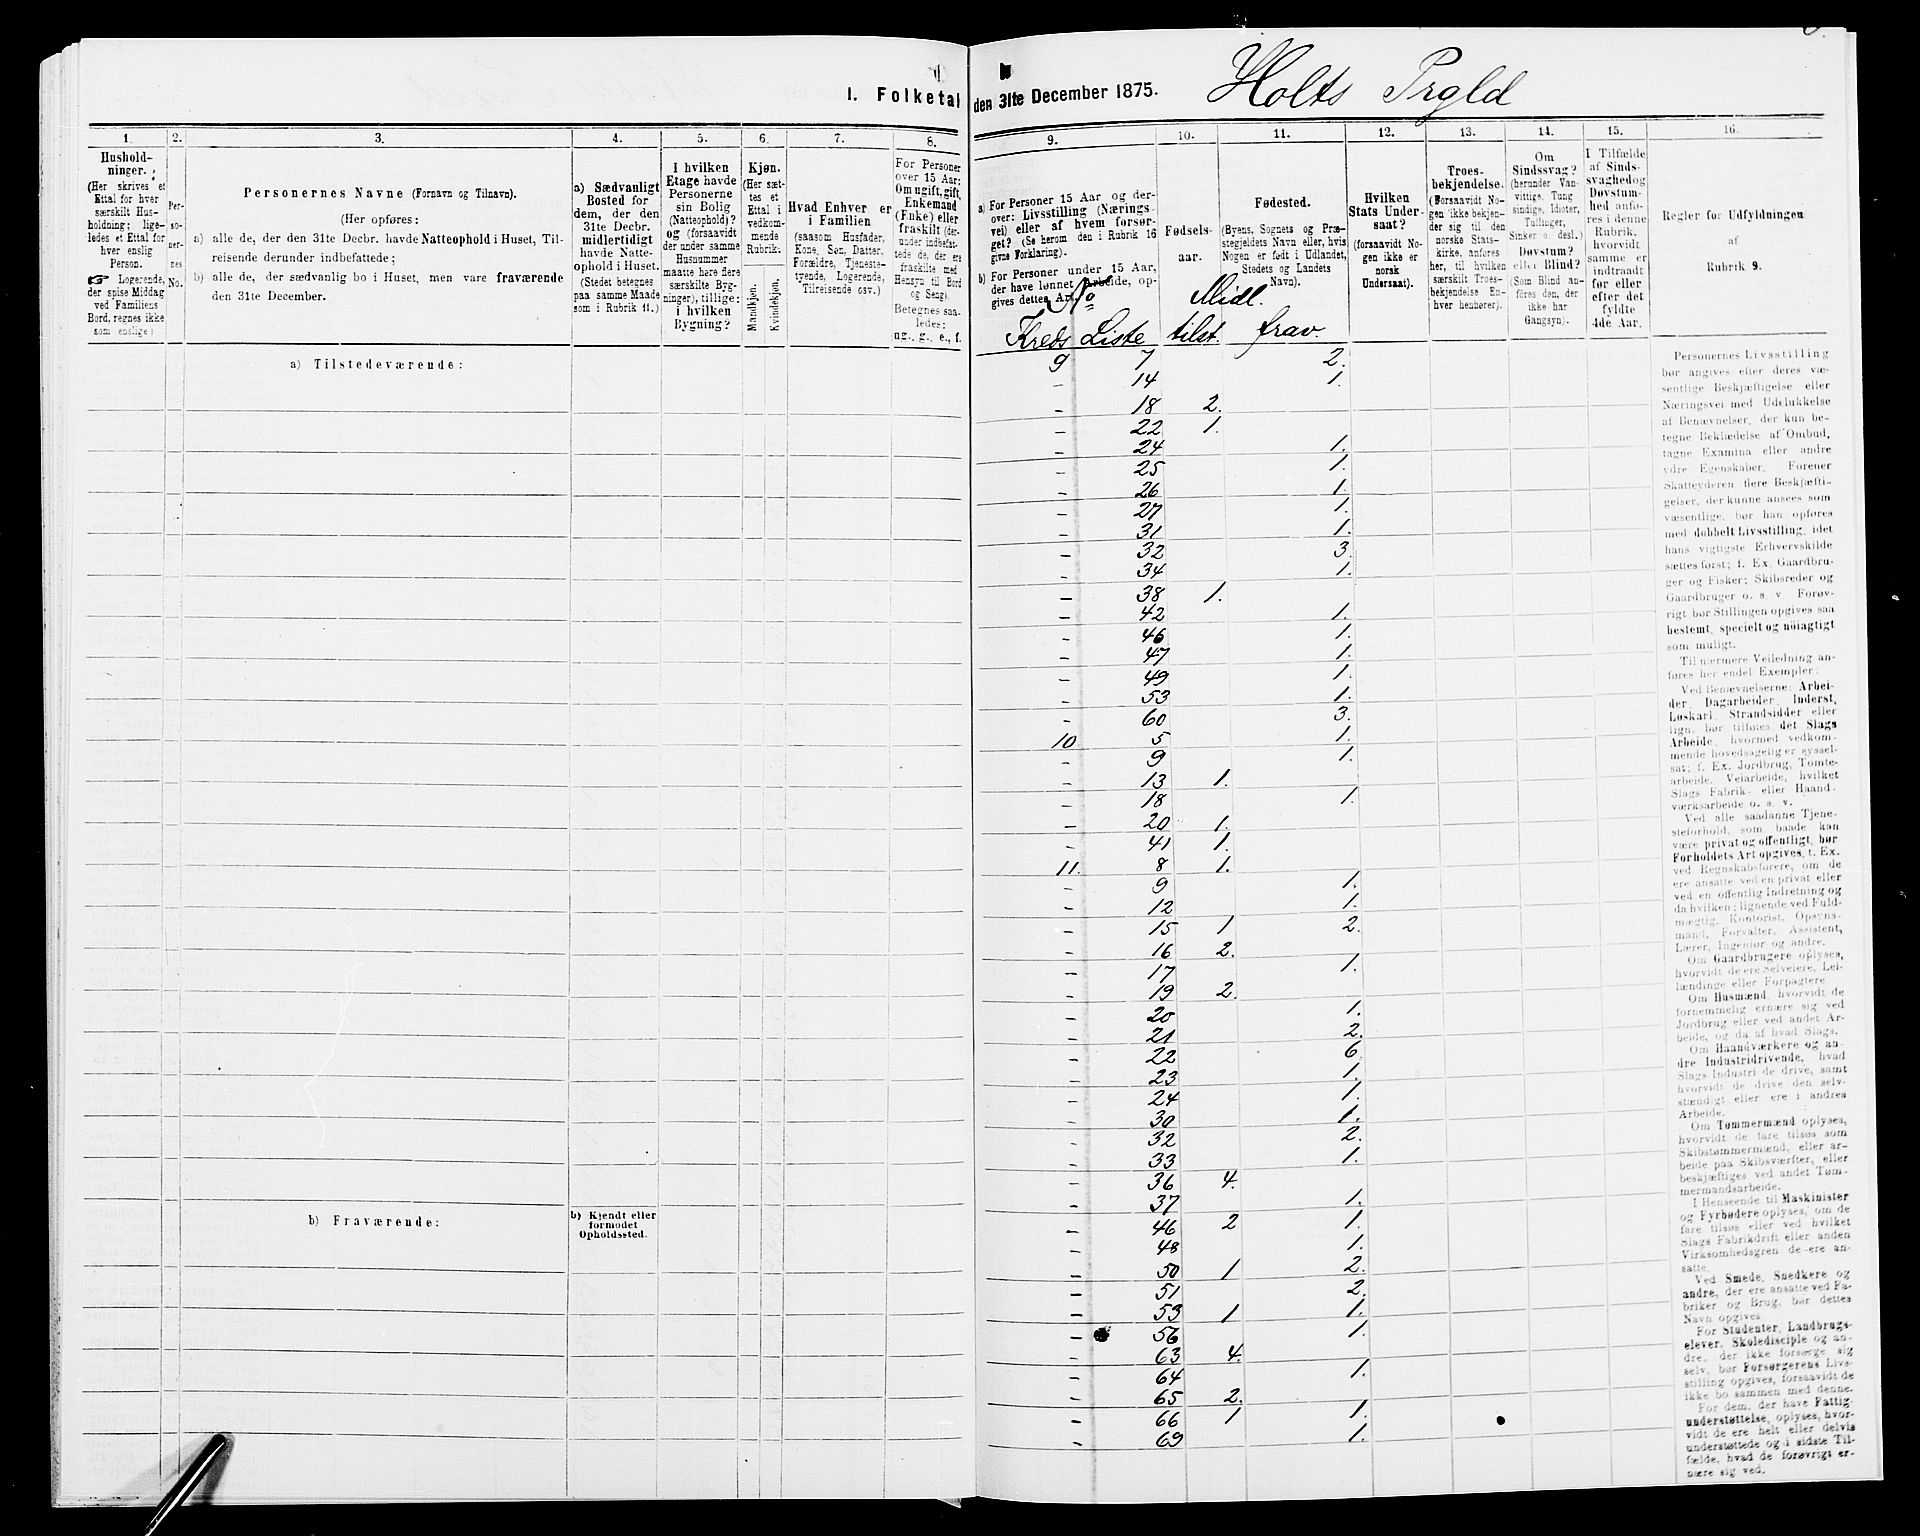 I. Folketal
den 31te December 1875.
Holts Prgld
1.
2.
3.
4.
5.
6.
7.
8.
Hushold-
ninger.
(Her skrives et
Ettal for hver
særskilt Hus-
holdning; lige-
ledes et Ettal for
hver enslig
Person.
☞ Logerende,
der spise Middag
ved Familiens
Bord, regnes ikke
som enslige)
Per-
so-
ner-
nes
No.
Personernes Navne (Fornavn og Tilnavn).
(Her opføres:
a) alle de, der den 31te Decbr. havde Natteophold i Huset, Til-
reisende derunder indbefattede;
b) alle de, der sædvanlig bo i Huset, men vare fraværende
den 31te December.
a) Sædvanligt
Bosted for
dem, der den
31te Decbr.
midlertidigt
havde Natte-
ophold i Huset.
(Stedet betegnes
paa samme Maade
som i Rubrik 11.)
I hvilken
Etage havde
Personerne
sin Bolig
(Natteophold)?
og (forsaavidt
der under samme
Husnummer
maatte høre flere
særskilte Byg-
nger), tillige:
i hvilken
Bygning?
Kjøn.
(Her sæt-
tes et
Ettal i
vedkom-
mende
Rubrik.
Mandkjøn.
Kvindekjøn.
Hvad Enhver er
i Familien
(saasom Husfader,
Kone, Søn, Datter,
Forældre, Tjeneste-
tyende, Logerende,
Tilreisende osv.)
For Personer
over 15 Aar:
Om ugift, gift,
Enkemand
(Enke) eller
fraskilt (der-
under indbefat-
tede de, der ere
fraskilte med
Hensyn til Bord
og Seng).
Betegnes saa-
ledes:
ug., g., e., f.
a) Tilstedeværende:
b) Fraværende:
b) Kjendt eller
formodet
Opholdssted.
9.
10.
11.
12.
13.
14.
15.
16.
a) For Personer 15 Aar og der-
over: Livsstilling (Nærings-
vei) eller af hvem forsør-
get? (Se herom den i Rubrik 16
givne Forklaring).
b) For Personer under 15 Aar,
der have lønnet Arbeide, op-
gives dettes Art.
Fødsels-
aar.
Fødested.
(Byens, Sognets og Præ-
stegjeldets Navn eller, hvis
Nogen er født i Udlandet,
Stedets og Landets
Navn).
Hvilken
Stats Under-
saat?
(forsaavidt No-
gen ikke er
norsk
Undersaat).
Troes-
bekjendelse.
(Forsaavidt No-
gen ikke bekjen-
der sig til den
norske Stats-
kirke, anføres
her, til hvilken
særskilt Troes-
bekjendelse En-
hver henhører).
Om
Sindssvag?
(herunder Van-
vittige, Tung
sindige, Idioter,
Tullinger,
Sinker o. desl.)
Døvstum?
eller Blind?
(Som Blind an-
føres den, der
ikke har
Gangsyn).
I Tilfælde
af Sinds-
svaghed og
Døvstum-
hed anfø-
res i denne
Rubrik,
hvorvidt
samme er
indtraadt
før eller
efter det
fyldte
4de Aar.
Regler for Udfyldningen
af
Rubrik 9.
No Midl.
Kreds Liste tilst. frav.
9 7 2.
– 14 1.
– 18 2.
– 22 1.
– 24 1.
– 25 1.
– 26 1.
– 27 1.
– 31 1.
– 32 3.
– 34 1.
– 38 1.
– 42 1.
– 46 1.
– 47 1.
– 49 1.
– 53 1.
– 60 3.
10 5 1.
– 9 1.
– 13 1.
– 18 1.
– 20 1.
– 41 1.
11. 8 1.
– 9 1.
– 12 1.
– 15 1 2.
– 16 2.
– 17 1.
– 19 2.
– 20 1.
– 21 2.
– 22 6
– 23 1.
– 24 1.
– 30 1.
– 32 2.
– 33 1.
– 36 4.
– 37 1.
– 46 2 1.
– 48 1.
– 50 1 2.
– 51 2.
– 53 1 1.
– 56 1.
– 63 4.
– 64 1.
– 65 2.
– 66 1 1.
– 69 1.
Personernes Livsstilling
bør angives efter deres væ-
sentlige Beskjæftigelse eller
Næringsvei med Udelukkelse
af Benævnelser, der kun be-
tegne Beklædelse af Ombud,
tagne Examina eller andre
ydre Egenskaber. Forener
Skatteyderen flere Beskjæfti-
gelser, der kunne ansees som
væsentlige, bør han opføres
med dobbelt Livsstilling, idet
hans vigtigste Erhvervskilde
sættes først; f. Ex. Gaardbru-
ger og Fisker; Skibsreder og
Gaardbruger o. s. v. Forøv-
rigt bør Stillingen opgives saa
bestemt, specielt og nöiagtigt
som muligt.
Til nærmere Veiledning an-
føres her endel Exempler:
Ved Benævnelserne: Arbei-
der, Dagarbeider, Inderst,
Løskarl, Strandsidder eller
lign. bør tilføies det Slags
Arbeide, hvormed vedkom-
mende hovedsagelig er syssel-
sat; f. Ex. Jordbrug, Tomte-
arbeide, Veiarbeide, hvilket
Slags Fabrik- eller Haand-
værksarbeide o. s. v.
Ved alle saadanne Tjene-
steforhold, som baade kan
være privat og offentligt, bør
Forholdets Art opgives, t. Ex.
ved Regnskabsførere, om de
ere ansatte ved en privat eller
ved en offentlig Indretning og
da hvilken; lignende ved Fuld-
mægtig, Kontorist, Opsyns-
mand, Forvalter, Assistent,
Lærer, Ingeniør og andre.
Om Gaardbrugere oplyses,
hvorvidt de ere Selveiere, Lei-
lændinge eller Forpagtere.
Om Husmænd, hvorvidt de
fornemmelig ernære sig ved
Jordbrug eller ved andet Ar-
beide, og da af hvad Slags.
Om Haandværkere og an-
dre Industridrivende, hvad
Slags Industri de drive, samt
hvorvidt de drive den selv-
stændigt eller ere i andres
Arbeide.
Om Tømmermænd oplyses,
hvorvidt de fare tilsøs som
Skibstømmermænd, eller ar-
beide paa Skibsværfter, eller
beskjæftiges ved andet Tøm-
mermandsarbeide.
I Henseende til Maskinister
og Fyrbødere oplyses, om de
fare tilsøs eller ved hvilket
Slags Fabrikdrift eller anden
Virksomhedsgren de ere an-
satte.
Ved Smede, Snedkere og
andre, der ere ansatte ved Fa-
briker og Brug, bør dettes
Navn opgives.
For Studenter, Landbrugs-
elever, Skoledisciple og an-
dre, der ikke forsørge sig
selv, bør Forsørgerens Livs-
stilling opgives, forsaavidt de
ikke bo sammen med denne.
For dem, der have Fattig-
understøttelse, oplyses, hvor-
vidt de ere helt eller delvis
understøttede og i sidste Til-
fælde, hvad de forøvrigt er-
nære sig ved.